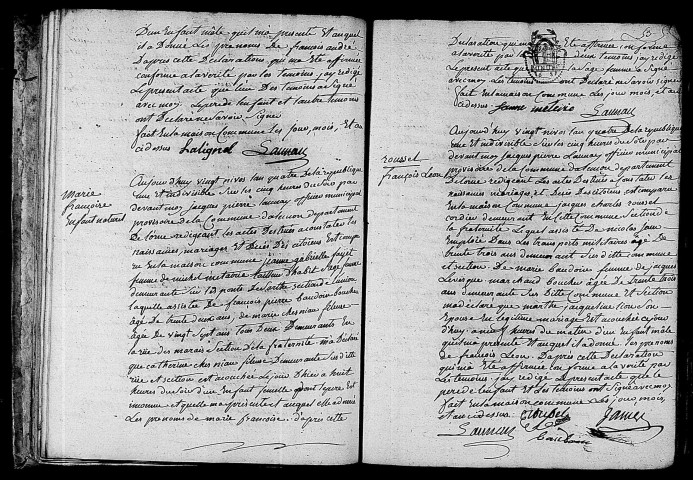 D'un Enfant mâle qu'il m'a présenté Et auquel
il a Donné Les prénoms De françois andré
D'après cette Déclarations qui m'a Eté affirmée
conforme a la vérité par les témoins j'ay rédigé
Le présent acte que l'un Des témoins a Signé
avec moy Le père de l'enfant et l'autre témoins
ont Déclaré ne Savoir Signé
fait En la maison Commune Les jour, mois, Et an
ci dessus
Launau
Marie
françoise
Enfant naturel
Aujourd'huy vingt nivos l'an quatre De la république
une Et indivisible Sur les cinq heures du soir par
devant moy Jacques pierre Launay officier municipal
provisoire de la Commune département
De l'orne rédigeant Les actes Destinés a constater les
naissances, mariages et Décès Des citoiens Est compa
rue En la maison commune jeanne gabrielle
femme de michel
demeurante Sur
laquelle assistée De françois pierre Baudouin Boucher
âgé De trente deux ans, de marie
âgée De vingt Sept ans tous Deux Demeurants En
la rue des marais Section De la fraternité m'a Déclaré
que catherine Demeurante Susditte
rue et Section est accouchée Le jour D'hier a huit
heures du soir D'un Enfant femelle Dont le père Est
inconnu et quelle m'a présenté et auquel elle a donné
Les prénoms de marie françoise. D'après cette
53
Déclaration qui m'a Eté affirmée conforme
témoins j'ay rédigé
Le présent acte femme a Signé
avec moy Les témoins ont Déclaré ne savoir Signé
fait En la maison Commune Les jour mois, et an
ci dessus
Launau
rousset
françois Leon
Aujourd'huy vingt nivos l'an quatre De la république
une et indivisible Sur les cinq heures du Soir par
devant moy Jacques pierre Launay officier municipal
provisoire De la Commune département
De l'orne rédigeant Les actes Destinés a constater Les
naissances mariages et Décès Des citoiens Est comparu
En la maison Commune Jacques charles rousset
cordier demeurant En cette Commune Section de
la fraternité Lequel assisté De nicolas
Employé Dans Les transports militaires âgé De
trente trois ans demeurant Susditte commune
et Section De marie Baudouin femme de jacques
Levesque marchand Boucher âgée De trente trois
ans demeurante Susditte Commune et Section
m'a déclaré que marthe jacqueline Son
Epouse En légitime mariage Est accouchée ce jour
d'huy a neuf heures du matin D'un Enfant mâle
qu'il m'a présenté Et auquel il a donné Les prénoms
de françois Leon. D'après cette Déclaration
qui m'a Eté affirmée conforme a la vérité par
Les témoins j'ay rédigé Le présent acte que Le
père de l'enfant et Les témoins ont Signé avec moy
fait En la maison commune Les jour mois
et an ci dessus.
Launau